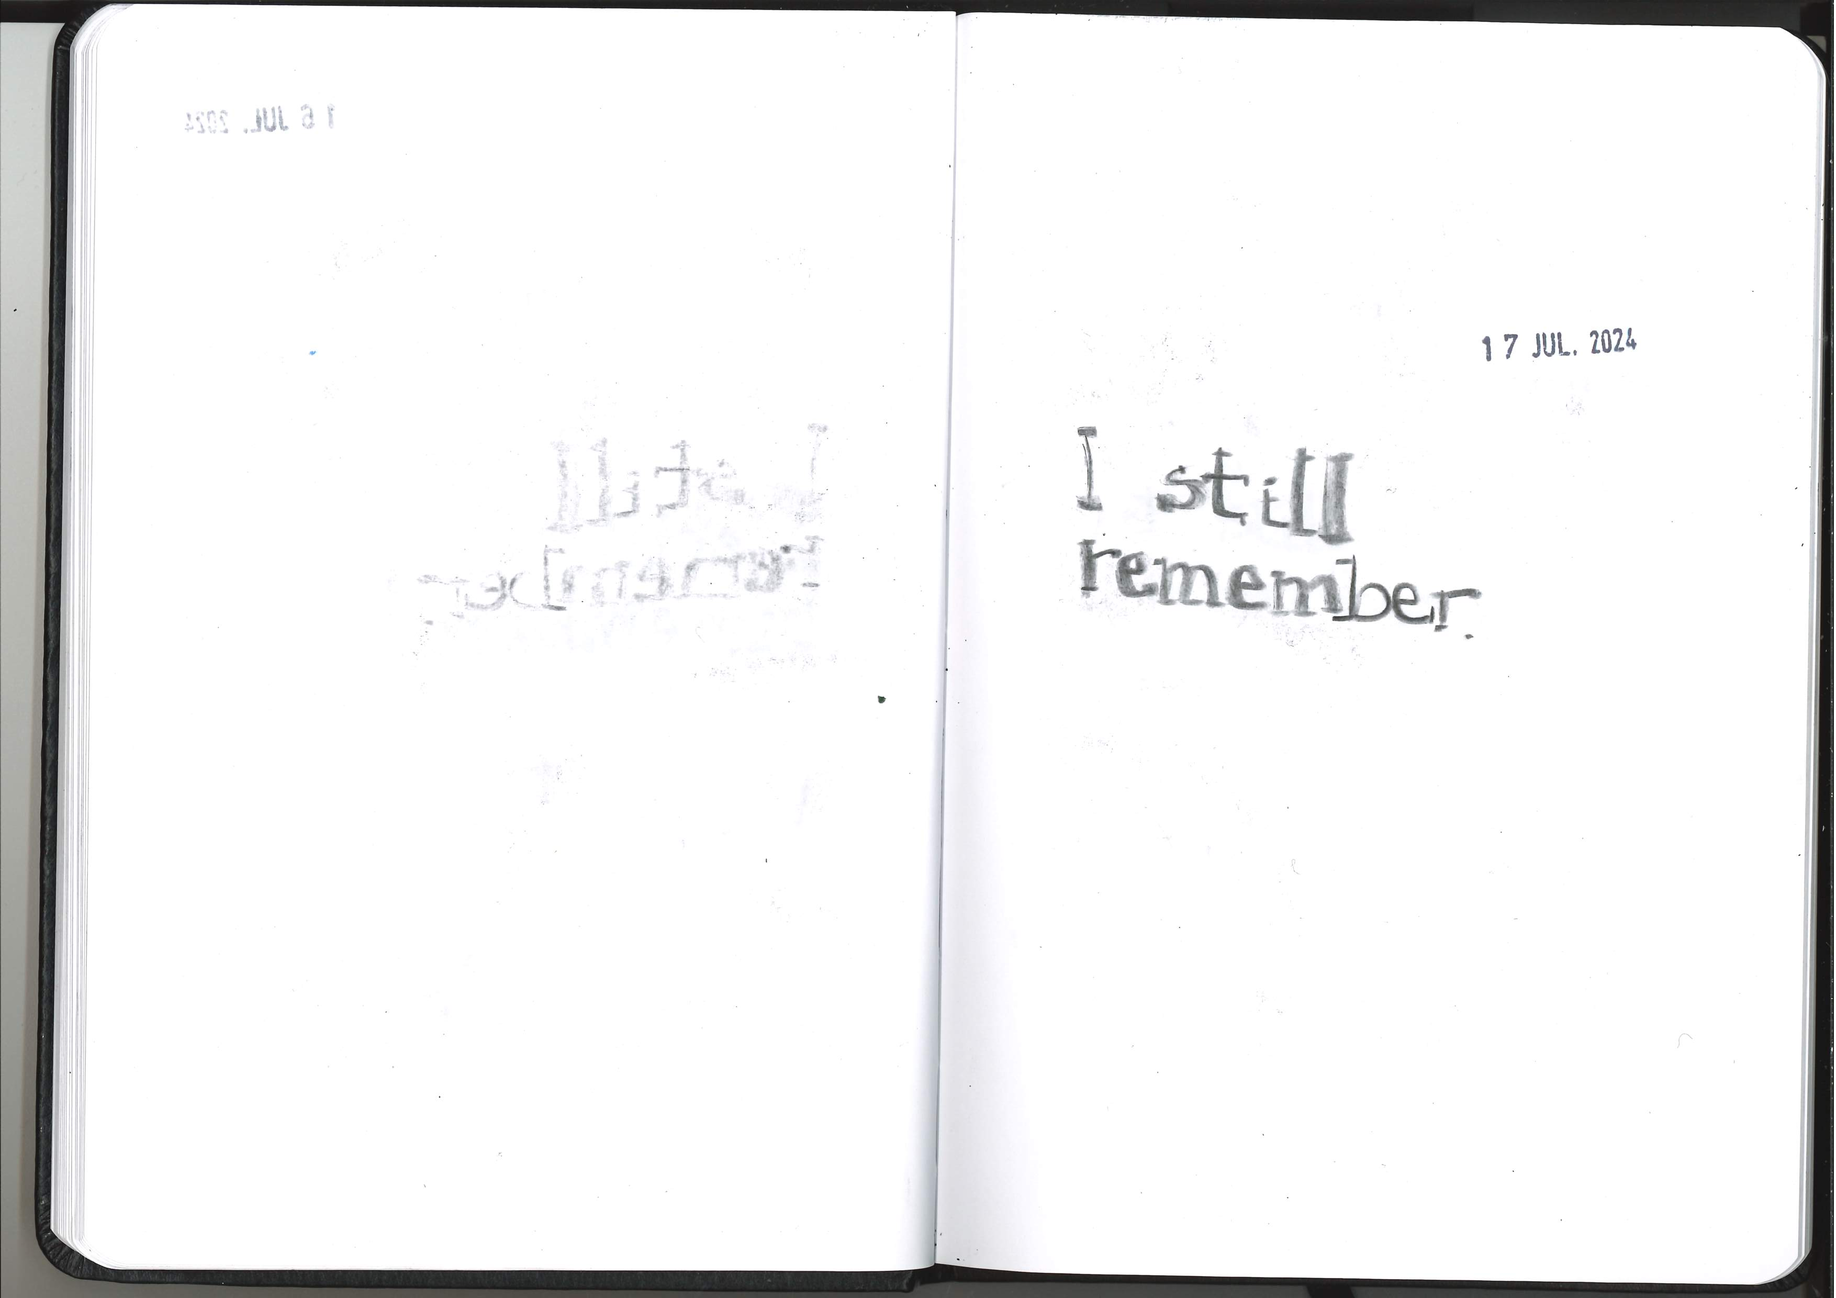 16 JUL. 2024
I still
remember.
17 JUL. 2024
I still
remember.